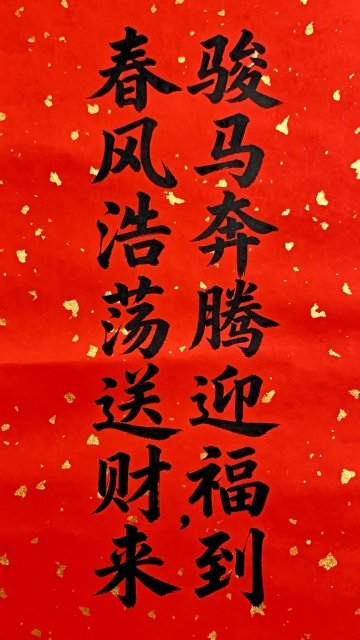 骏马奔腾迎福到,
春风浩荡送财来